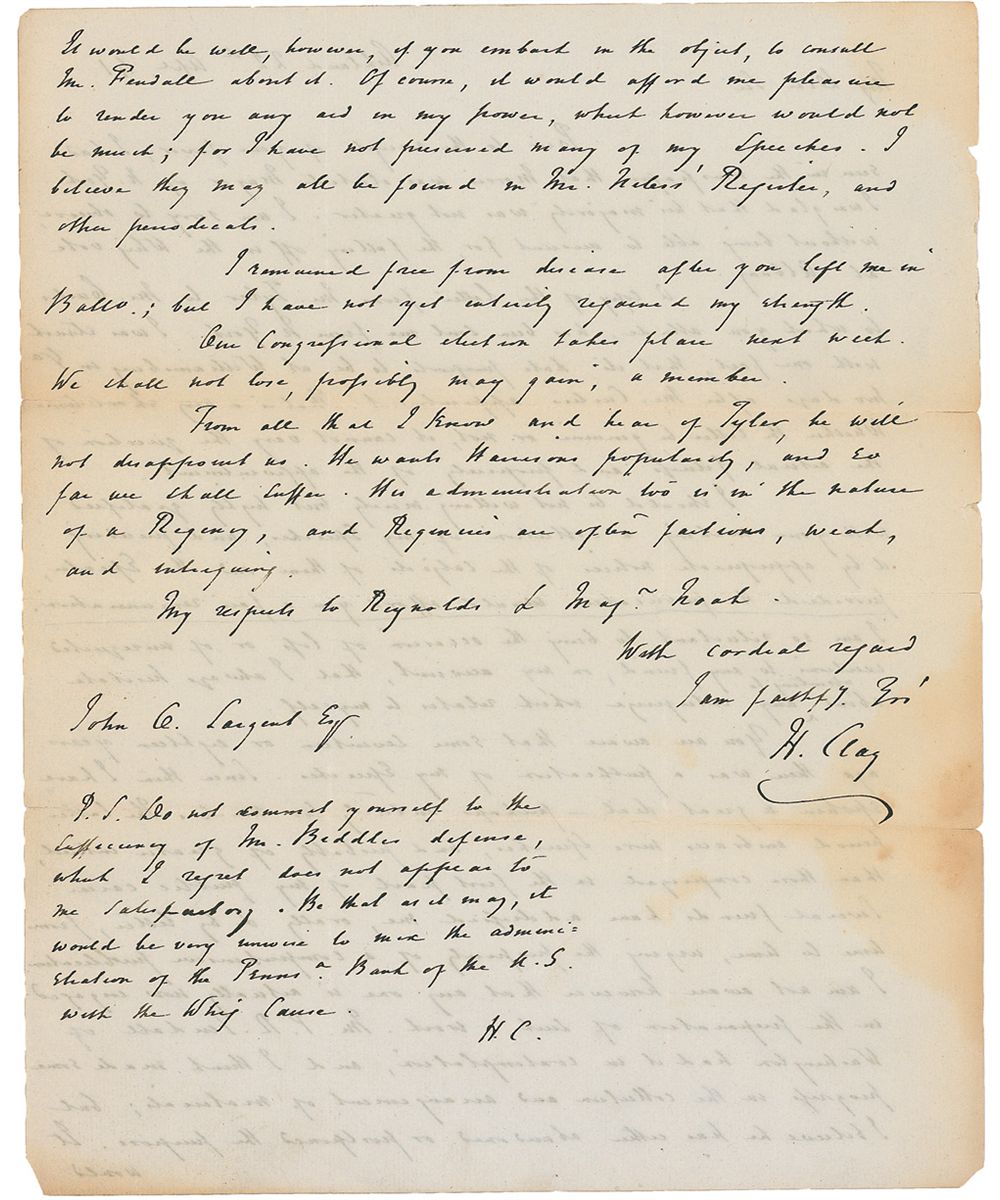 It would be well, however, if you embark in the object, to consult
Mr. Fendall about it. Of course, it would afford me pleasure
to render you any aid in my power, which however would not
be much; for I have not preserved many of my Speeches. I
believe they may all be found in Mr. Niless' Register, and
other periodicals.
I remained free from disease after you left me in
Balto.; but I have not yet entirely regained my strength.
Our Congressional election takes place next week.
We shall not lose, possibly may gain, a member.
From all that I know and hear of Tyler, he will
not disappoint us. He wants Harrisons popularity, and so
far we shall suffer. His administration too is in the nature
of a Regency, and Regencies are often factious, weak,
and intriguing.
My respects to Reynolds & Majr. Noah.
With cordial regard
I am faithfy. Yrs
H. Clay
John O. Sargent Esq
P.S. Do not commit yourself to the
sufficiency of Mr. Biddles defense,
which I regret does not appear to
me satisfactory. Be that as it may, it
would be very unwise to mix the admini=
stration of the Penna. Bank of the U.S.
with the Whig Cause.
H.C.